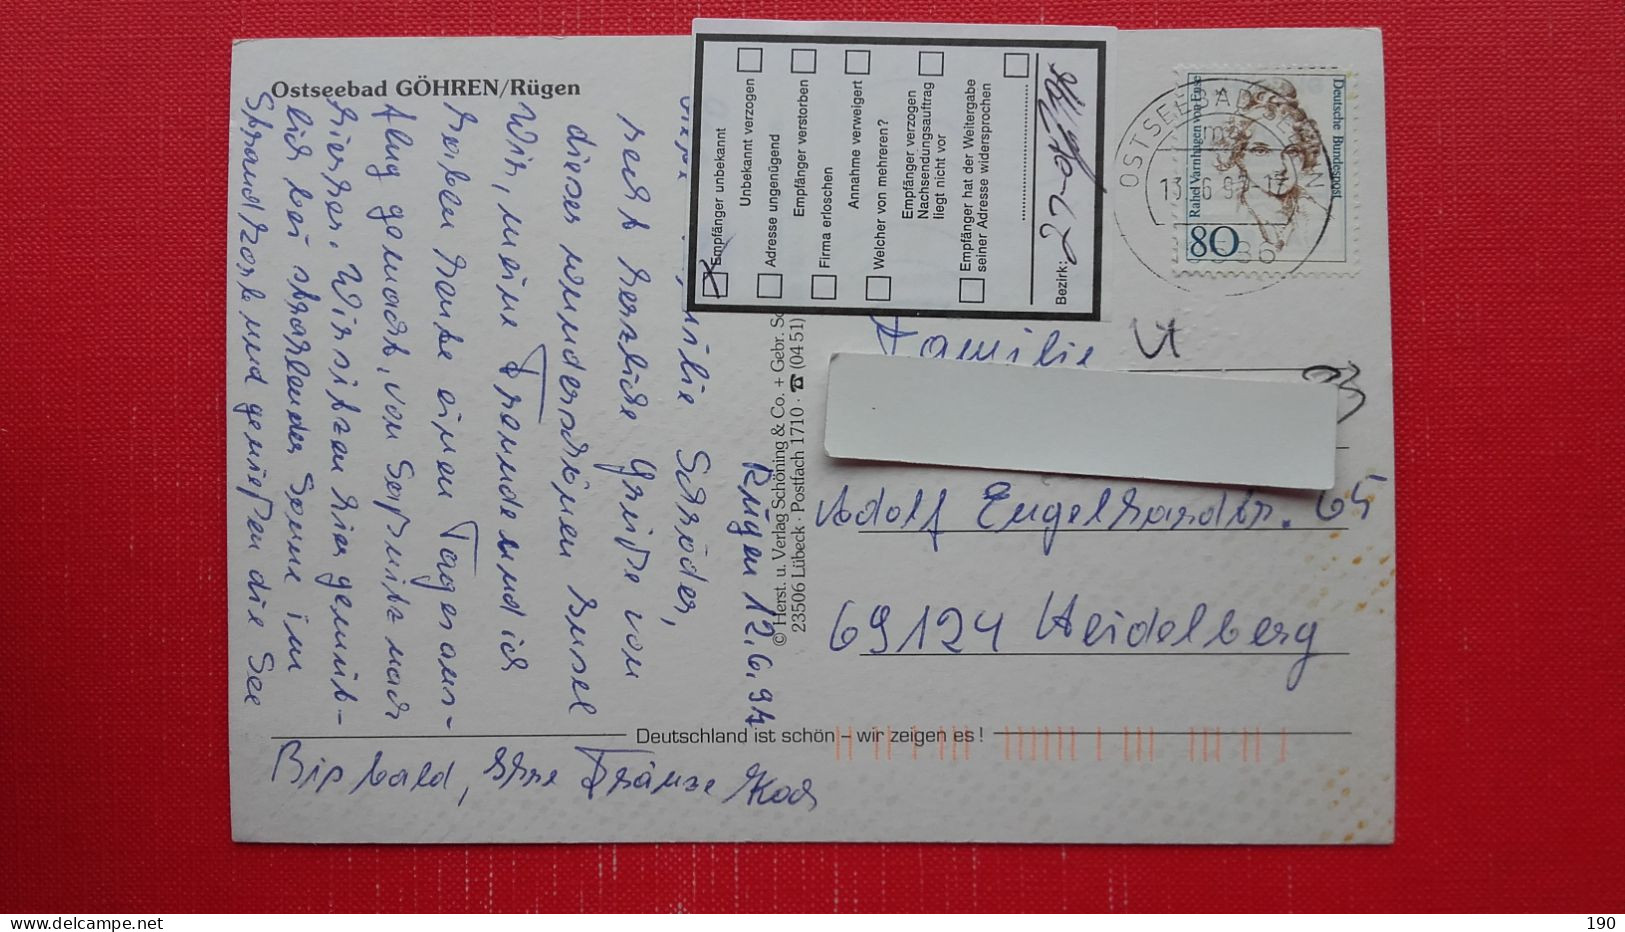 Ostseebad GÖHREN/Rügen
Rügen 12.6.97
Familie Schröder,
recht herzliche Grüße von
dieser wunderschönen Insel
Wir, meine Freunde und ich
haben heute einen Tagesaus-
flug gemacht, von Saßnitz nach
hierher. Wir sitzen hier gemüt-
lich bei strahlender Sonne im
Strandkorb und genießen die See
Bis bald, Ihre Fränze Koch
Deutschland ist schön – wir zeigen es!
© Herst. u. Verlag Schöning & Co. + Gebr. Sc
23506 Lübeck · Postfach 1710 · ☎ (0451)
Empfänger unbekannt
Unbekannt verzogen
Adresse ungenügend
Empfänger verstorben
Firma erloschen
Annahme verweigert
Welcher von mehreren?
Empfänger verzogen
Nachsendungsauftrag
liegt nicht vor
Empfänger hat der Weitergabe
seiner Adresse widersprochen
Bezirk: 27-
Deutsche Bundespost
Rahel Varnhagen von Ense
80
OSTSEEBAD SELLIN
13.-6.97-17
Familie
Adolf Engelhardtstr. 65
69124 Heidelberg
190